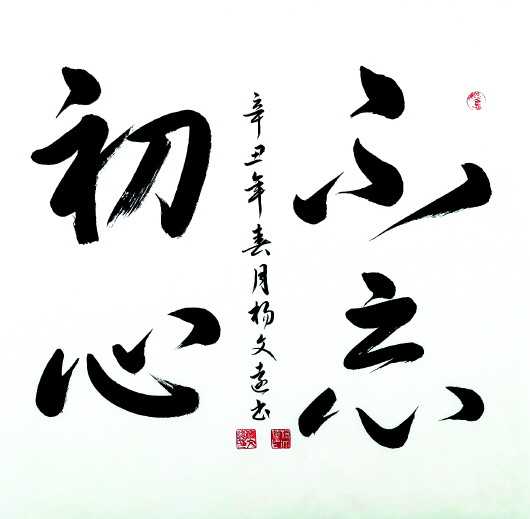 不忘
初心
辛丑年春月杨文远书